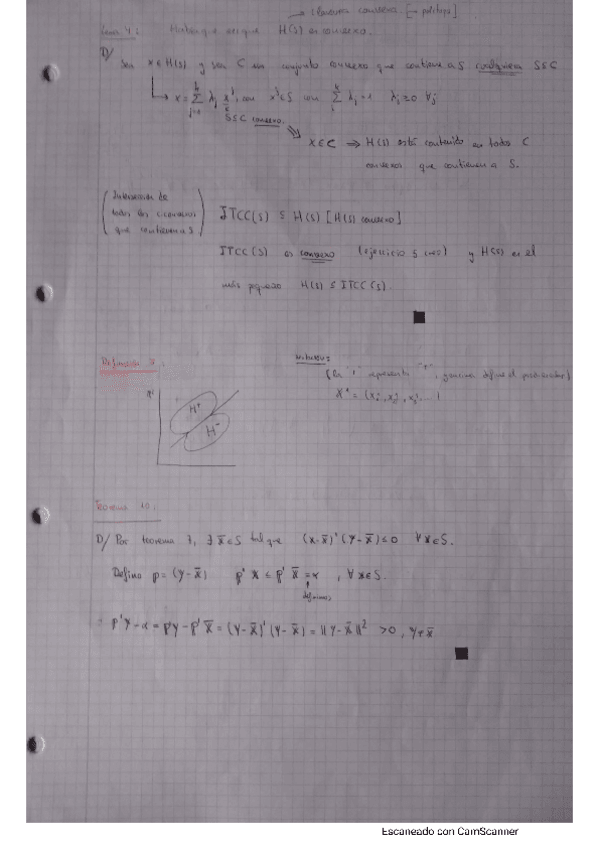 → clausura convexa. [→ politopo]
Lema 4: que H(S) es convexo.
D/ Sea x∈H(S) y sea C un conjunto convexo que contiene a S cualquiera S⊆C
↳ x = Σ λj x^j, con x^j∈S con Σ λj = 1 λj ≥ 0 ∀j
S⊆C convexo.
x∈C ⇒ H(S) está contenido en todos C
convexos que contienen a S.
(Intersección de
todos los convexos
que contienen a S)
ITCC(S) ⊆ H(S) [H(S) convexo]
ITCC(S) es convexo (ejercicio 5 ) y H(S) es el
más pequeño H(S) ⊆ ITCC(S).
Definición 7:
(En " ' " representa , define el )
H+
H-
Teorema 10:
D/ Por teorema 7, ∃ x̄∈S tal que (x-x̄)'(y-x̄) ≤ 0 ∀x∈S.
Defino p = (y-x̄) p'x ≤ p'x̄ = α, ∀x∈S.
definimos
p'y-α = p'y-p'x̄ = (y-x̄)'(y-x̄) = ||y-x̄||² > 0, y≠x̄
Escaneado con CamScanner